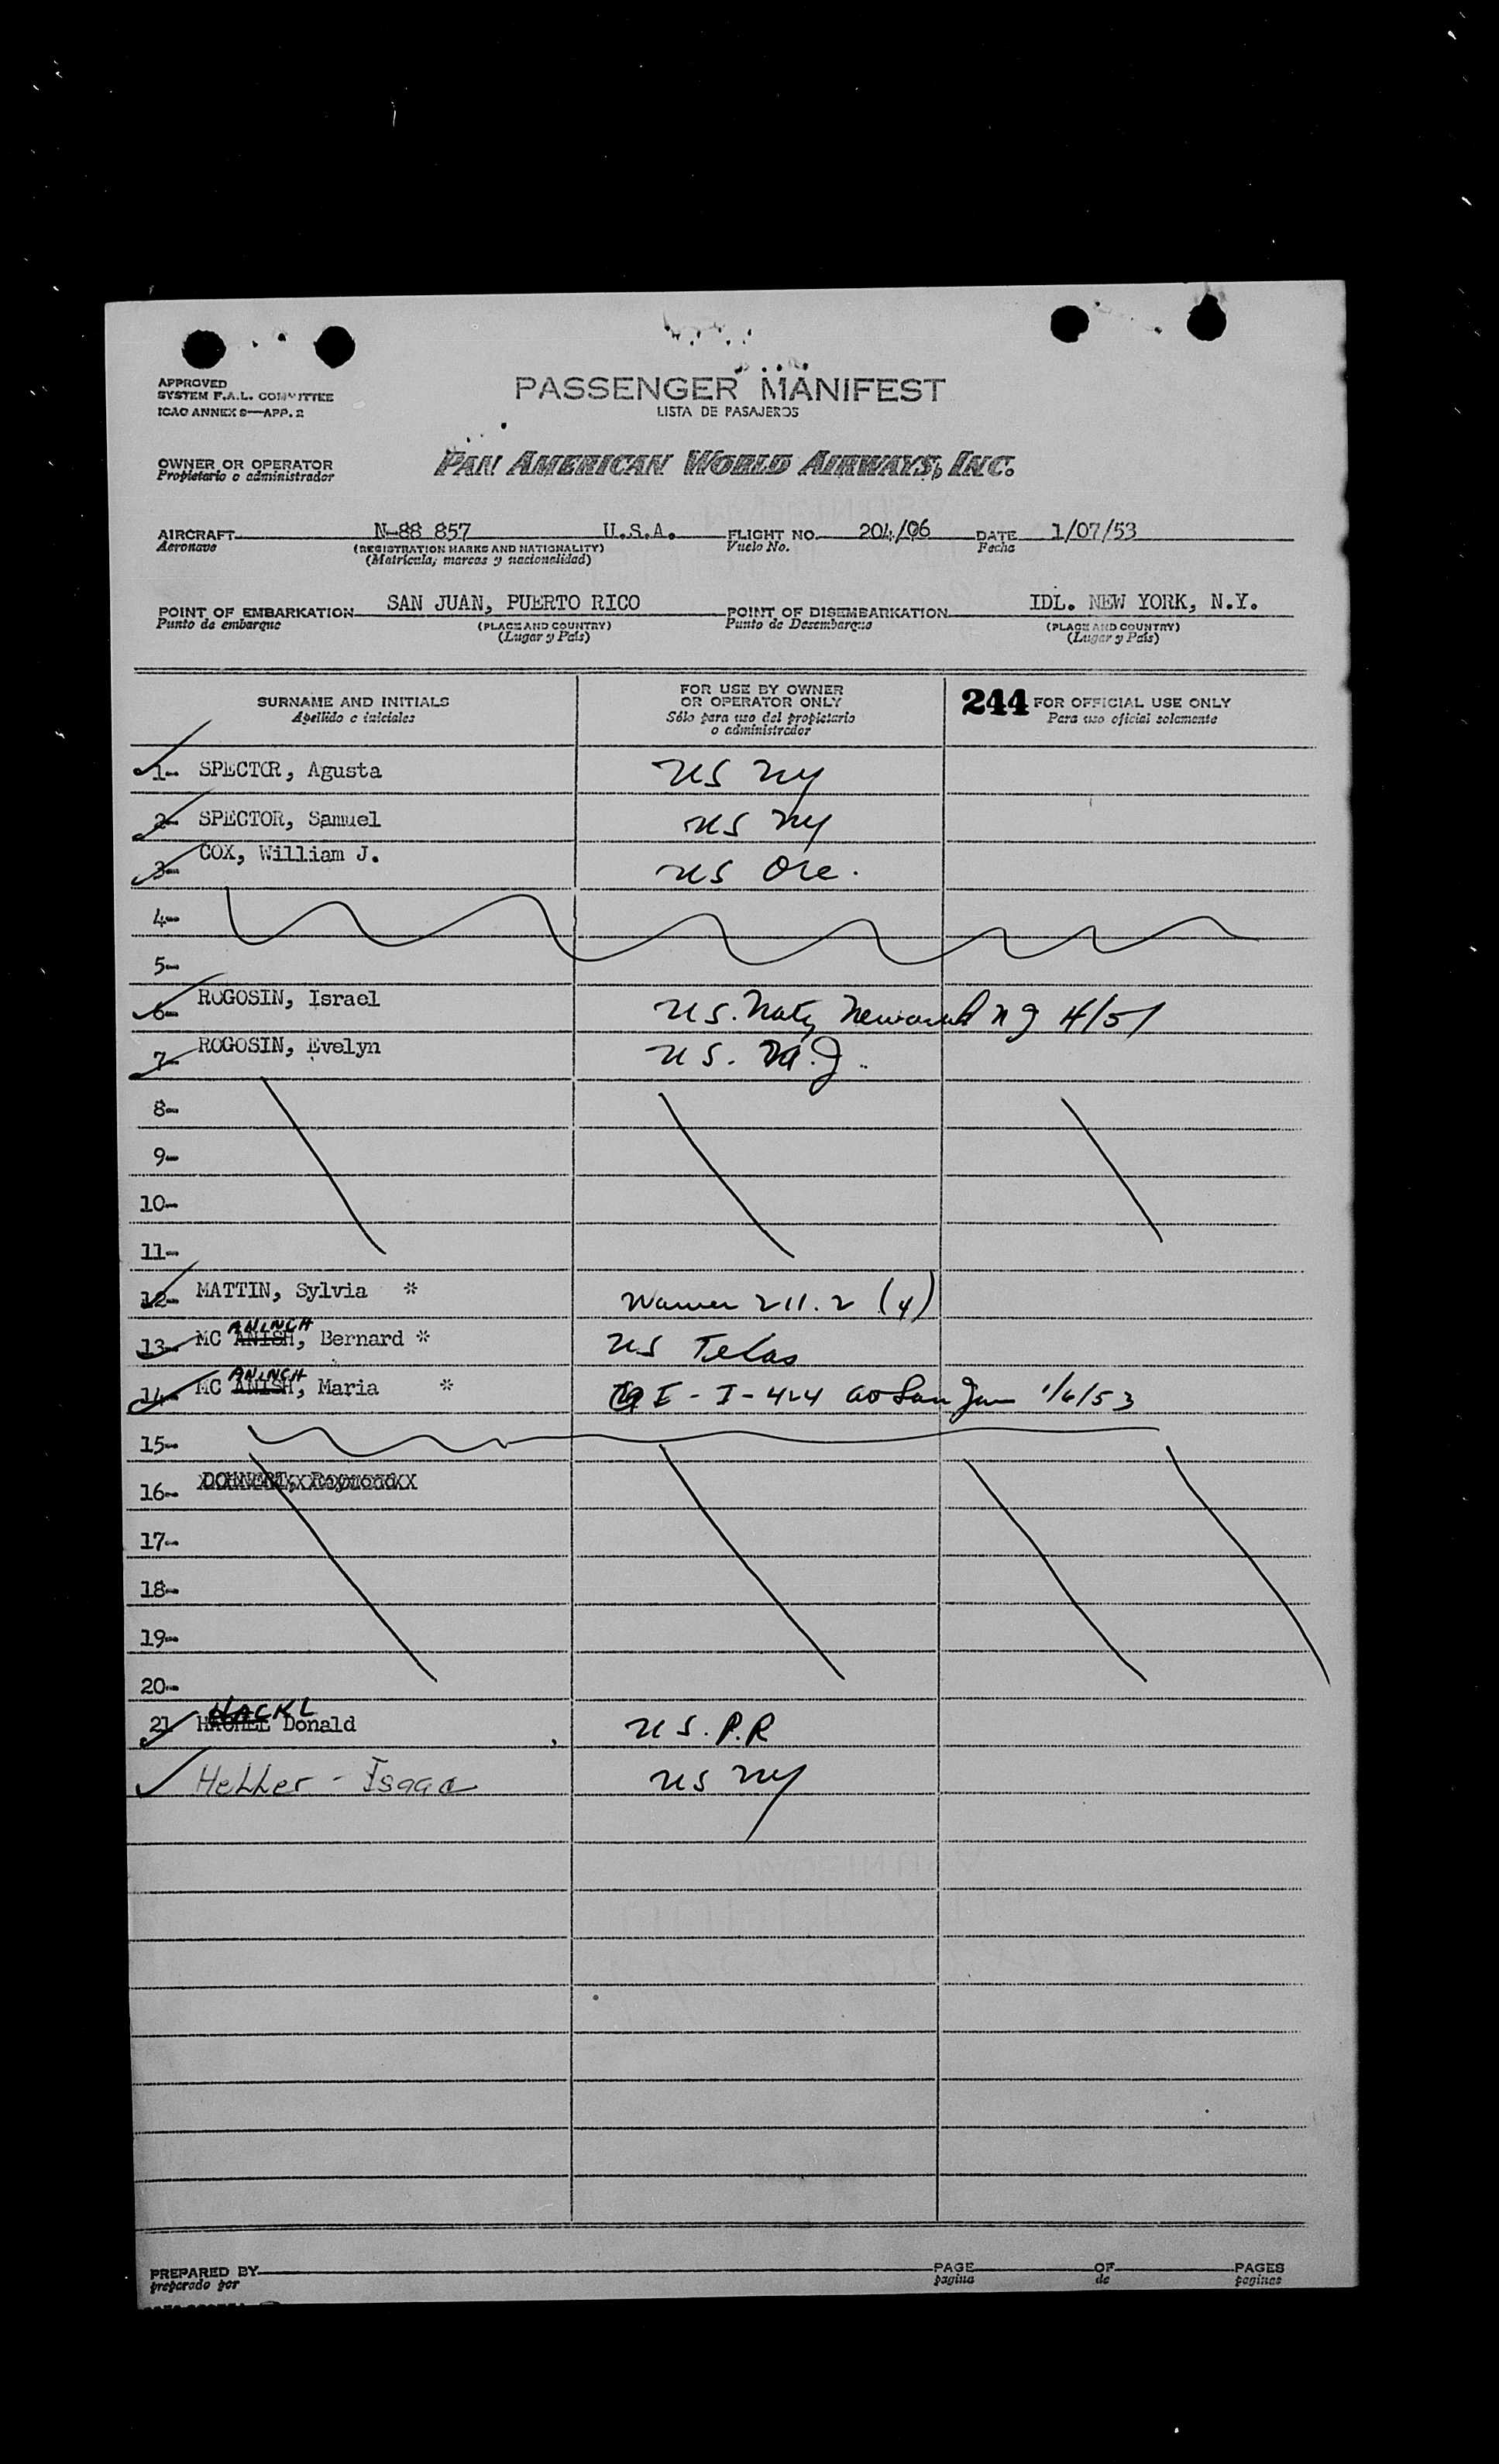 APPROVED
SYSTEM F.A.L. COMMITTEE
ICAO ANNEX 9—APP. 2
PASSENGER MANIFEST
LISTA DE PASAJEROS
OWNER OR OPERATOR
Propietario o administrador
PAN AMERICAN WORLD AIRWAYS, INC.
AIRCRAFT N-88 857 U.S.A. FLIGHT NO. 204/06 DATE 1/07/53
Aeronave (REGISTRATION MARKS AND NATIONALITY) Vuelo No. Fecha
(Matrícula, marcas y nacionalidad)
POINT OF EMBARKATION SAN JUAN, PUERTO RICO POINT OF DISEMBARKATION IDL. NEW YORK, N.Y.
Punto de embarque (PLACE AND COUNTRY) Punto de Desembarque (PLACE AND COUNTRY)
(Lugar y País) (Lugar y País)
SURNAME AND INITIALS
Apellido e iniciales
FOR USE BY OWNER
OR OPERATOR ONLY
Sólo para uso del propietario
o administrador
244 FOR OFFICIAL USE ONLY
Para uso oficial solamente
1- SPECTOR, Agusta US NY
2- SPECTOR, Samuel US NY
3- COX, William J. US Ore.
4-
5-
6- ROGOSIN, Israel U.S. Natz Newark NJ 4/51
7- ROGOSIN, Evelyn U S. N.J.
8-
9-
10-
11-
12- MATTIN, Sylvia * Waiver 211.2 (4)
13- MC ANISH, ANINCH Bernard * US Texas
14- MC ANISH, ANINCH Maria * I-424 San Juan 1/6/53
15-
16-
17-
18-
19-
20-
21 HACKL Donald U S. P.R
Heller - Isaac US NY
PREPARED BY PAGE OF PAGES
preparado por pagina de paginas